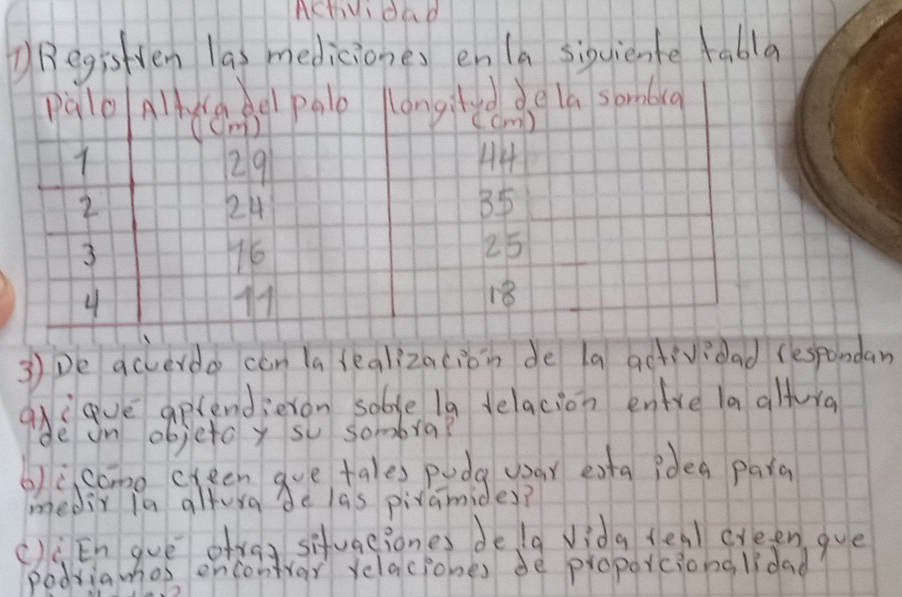 Actividad
1) Registren las mediciones en la siguiente tabla
palo Altura del palo longitud de la sombra
(cm) (cm)
1 29 44
2 24 35
3 16 25
4 11 18
3) De acuerdo con la realización de la actividad respondan
a) ¿que aprendieron sobre la relación entre la altura
de un objeto y su sombra?
b) ¿como creen que tales pudo usar esta idea para
medir la altura de las pirámides?
c) ¿En que otras situaciones de la vida real creen que
podriamos encontrar relaciones de proporcionalidad